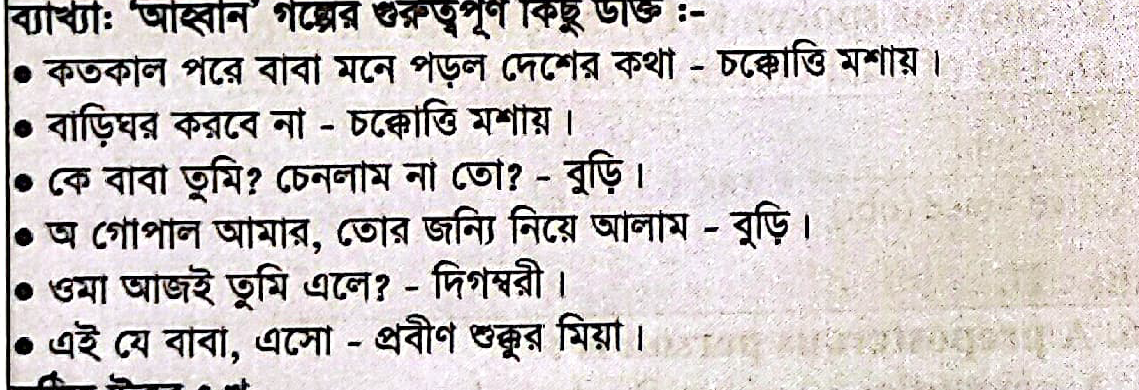 ব্যাখ্যা: ‘আহ্বান’ গল্পের গুরুত্বপূর্ণ কিছু উক্তি :-
• কতকাল পরে বাবা মনে পড়ল দেশের কথা - চক্কোত্তি মশায়।
• বাড়িঘর করবে না - চক্কোত্তি মশায়।
• কে বাবা তুমি? চেনলাম না তো? - বুড়ি।
• অ গোপাল আমার, তোর জন্যি নিয়ে আলাম - বুড়ি।
• ওমা আজই তুমি এলে? - দিগম্বরী।
• এই যে বাবা, এসো - প্রবীণ শুক্কুর মিয়া।